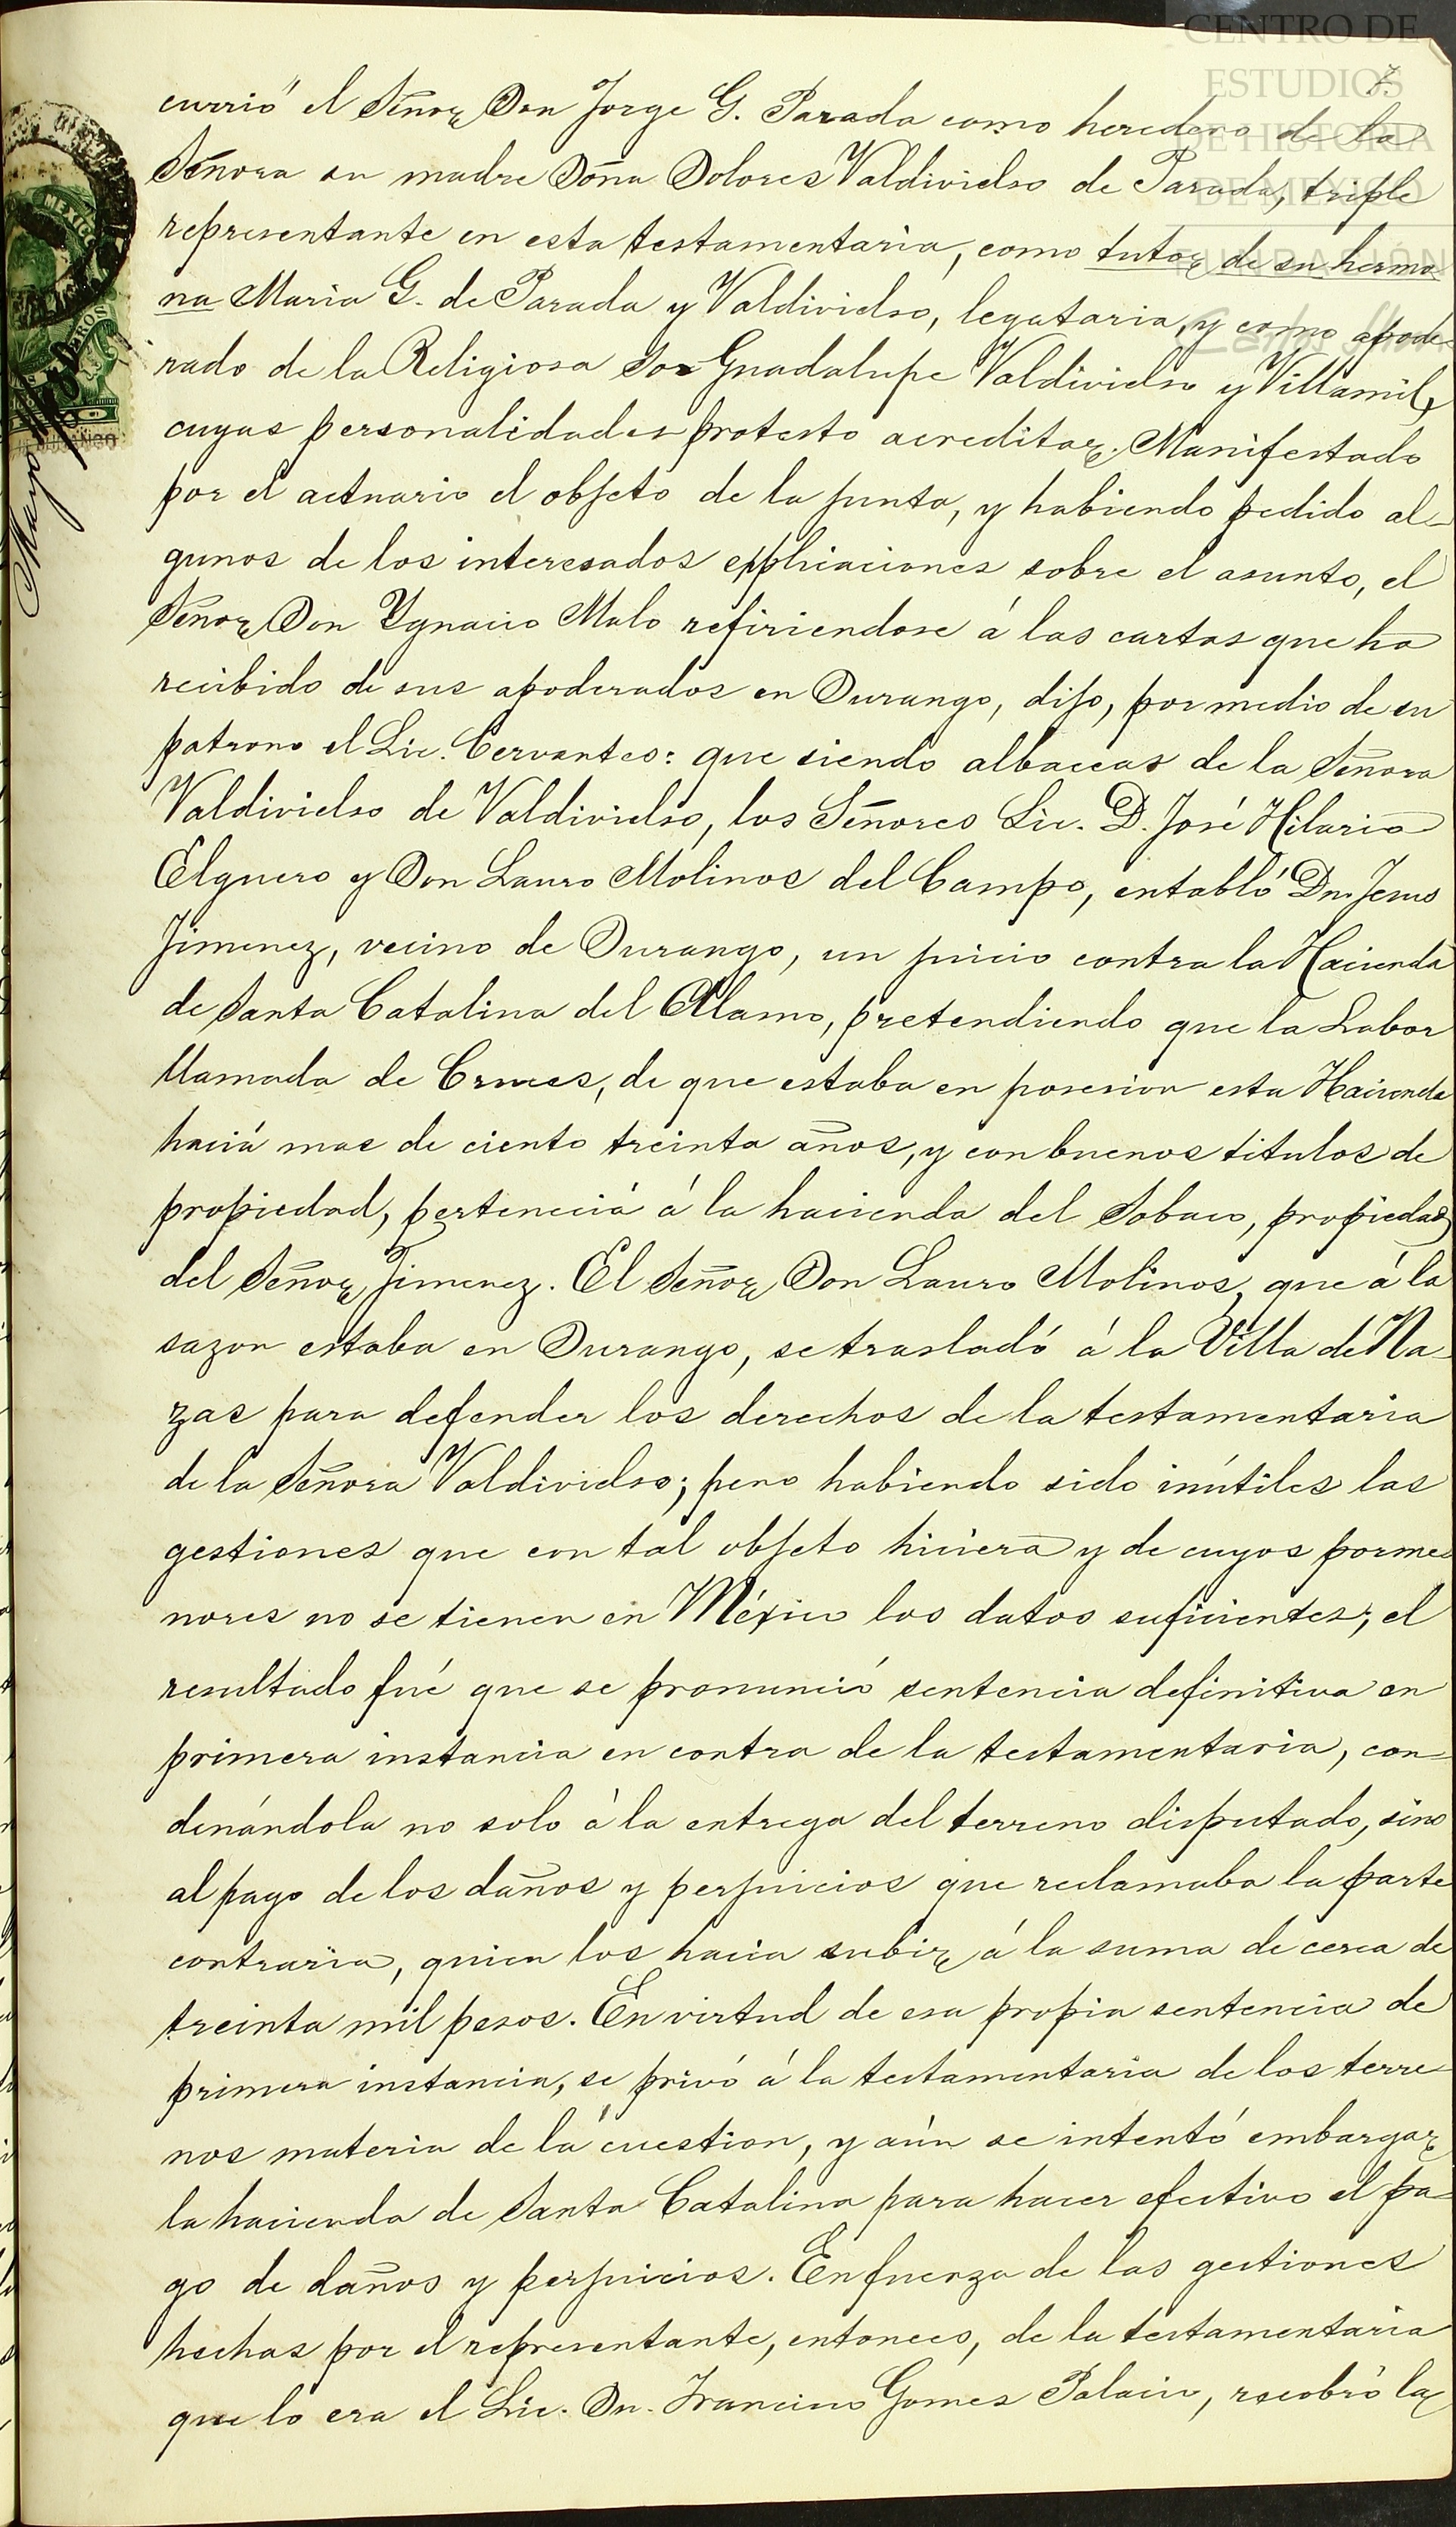 CENTRO DE
ESTUDIOS
DE HISTORIA
DE MÉXICO
FUNDACIÓN
Carlos Slim
7.
MEXICO
Mayo
currió el Señor Don Jorge G. Parada como heredero de la
Señora su madre Doña Dolores Valdivielso de Parada, triple
representante en esta testamentaria, como tutor de su herma
na Maria G. de Parada y Valdivielso, legataria, y como apode-
rado de la Religiosa Sor Guadalupe Valdivielso y Villamil,
cuyas personalidades protesto acreditar. Manifestado
por el actuario el objeto de la junta, y habiendo pedido al-
gunos de los interesados explicaciones sobre el asunto, el
Señor Don Ygnacio Malo refiriendose á las cartas que ha
recibido de sus apoderados en Durango, dijo, por medio de su
patrono el Lic. Cervantes: que siendo albaceas de la Señora
Valdivielso de Valdivielso, los Señores Lic. D. José Hilario
Elguero y Don Lauro Molinos del Campo, entabló Dn. Jesus
Jimenez, vecino de Durango, un juicio contra la Hacienda
de Santa Catalina del Alamo, pretendiendo que la Labor
llamada de Cruces, de que estaba en posesion esta Hacienda
haciá mas de ciento treinta años, y con buenos titulos de
propiedad, perteneciá á la hacienda del Sobaco, propiedad
del Señor Jimenez. El Señor Don Lauro Molinos, que á la
sazon estaba en Durango, se trasladó á la Villa de Na-
zas para defender los derechos de la testamentaria
de la Señora Valdivielso; pero habiendo sido inútiles las
gestiones que con tal objeto hiciera y de cuyos porme-
nores no se tienen en México los datos suficientes; el
resultado fué que se pronunció sentencia definitiva en
primera instancia en contra de la testamentaria, con-
denándola no solo á la entrega del terreno disputado, sino
al pago de los daños y perjuicios que reclamaba la parte
contraria, quien los hacia subir á la suma de cerca de
treinta mil pesos. En virtud de esa propia sentencia de
primera instancia, se privó á la testamentaria de los terre
nos materia de la cuestion, y aún se intentó embargar
la hacienda de Santa Catalina para hacer efectivo el pa-
go de daños y perjuicios. En fuerza de las gestiones
hechas por el representante, entonces, de la testamentaria
que lo era el Lic. Dn. Francisco Gomes Palacio, recobró la